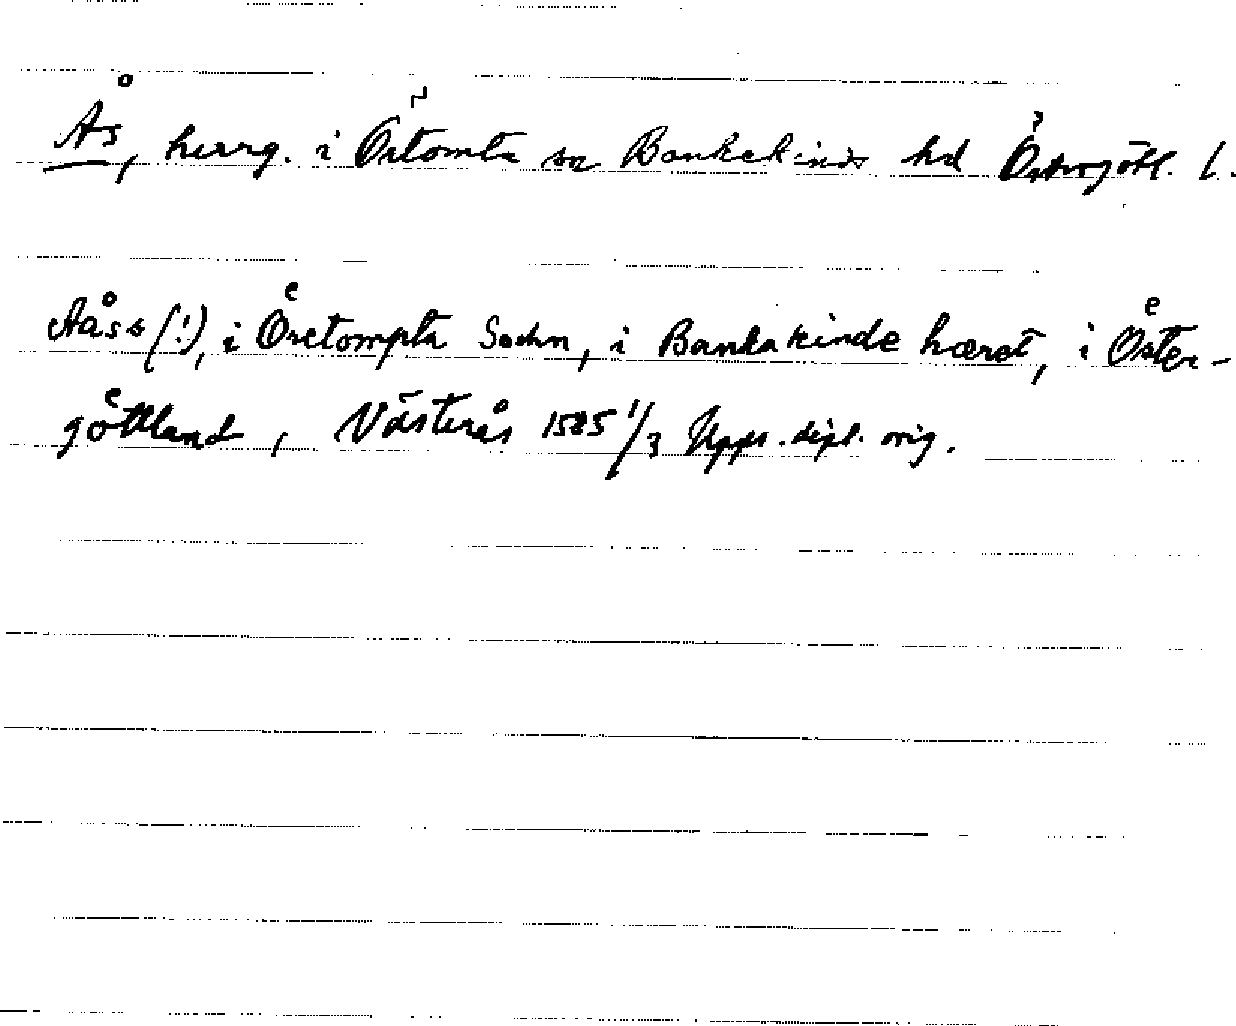 Ås, herrg. i Örtomta sn Bankekinds hd Östergötl. l.
Aåss (!), i Öretompta Sochn, i Bankakinde hæret, i Öster-
göttland, Västerås 1585 1/3 Upps. dipl. orig.